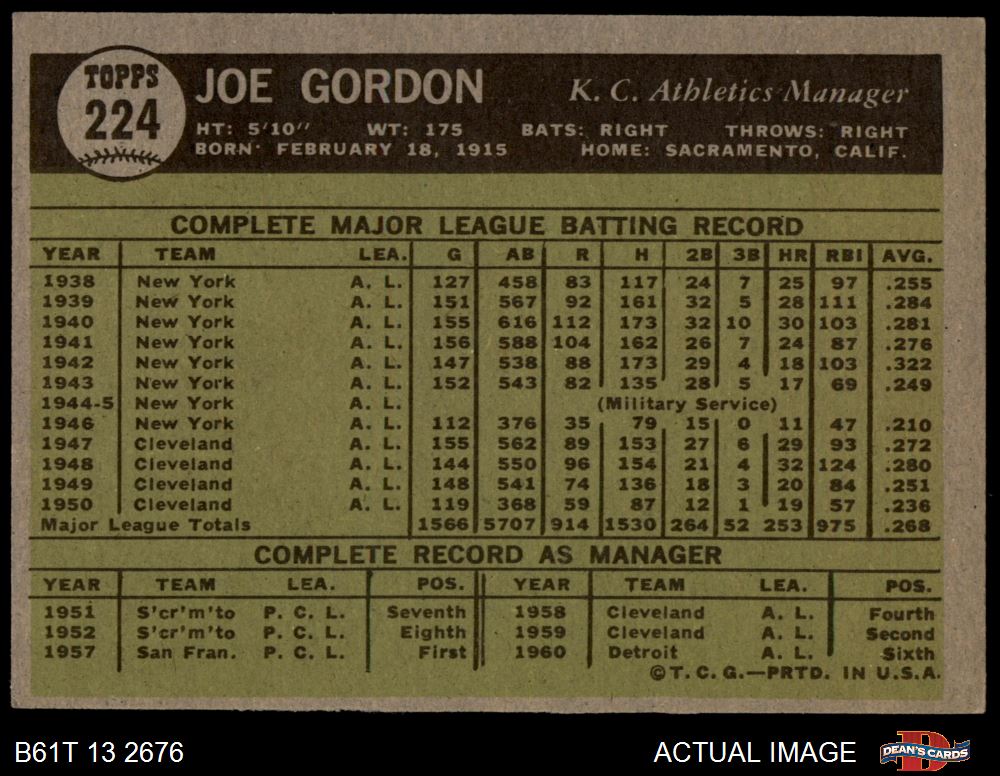 TOPPS
224
JOE GORDON K. C. Athletics Manager
HT: 5'10" WT: 175 BATS: RIGHT THROWS: RIGHT
BORN: FEBRUARY 18, 1915 HOME: SACRAMENTO, CALIF.
COMPLETE MAJOR LEAGUE BATTING RECORD
YEAR TEAM LEA. G AB R H 2B 3B HR RBI AVG.
1938 New York A. L. 127 458 83 117 24 7 25 97 .255
1939 New York A. L. 151 567 92 161 32 5 28 111 .284
1940 New York A. L. 155 616 112 173 32 10 30 103 .281
1941 New York A. L. 156 588 104 162 26 7 24 87 .276
1942 New York A. L. 147 538 88 173 29 4 18 103 .322
1943 New York A. L. 152 543 82 135 28 5 17 69 .249
1944-5 New York A. L. (Military Service)
1946 New York A. L. 112 376 35 79 15 0 11 47 .210
1947 Cleveland A. L. 155 562 89 153 27 6 29 93 .272
1948 Cleveland A. L. 144 550 96 154 21 4 32 124 .280
1949 Cleveland A. L. 148 541 74 136 18 3 20 84 .251
1950 Cleveland A. L. 119 368 59 87 12 1 19 57 .236
Major League Totals 1566 5707 914 1530 264 52 253 975 .268
COMPLETE RECORD AS MANAGER
YEAR TEAM LEA. POS. YEAR TEAM LEA. POS.
1951 S'cr'm'to P. C. L. Seventh 1958 Cleveland A. L. Fourth
1952 S'cr'm'to P. C. L. Eighth 1959 Cleveland A. L. Second
1957 San Fran. P. C. L. First 1960 Detroit A. L. Sixth
©T. C. G.—PRTD. IN U.S.A.
B61T 13 2676 ACTUAL IMAGE DEAN'S CARDS